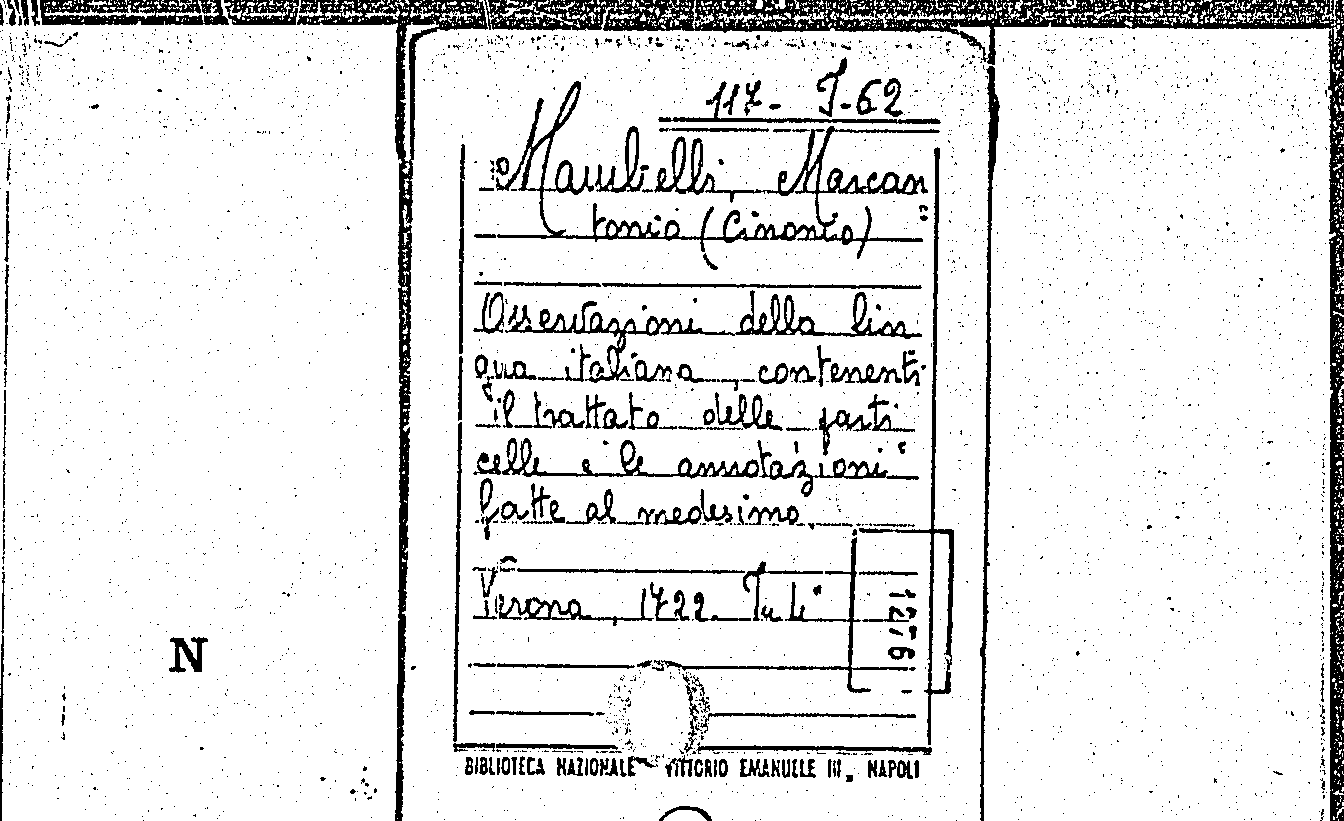 117- J-62
Mambelli, Marcan
tonio (Cinonio)
Osservazioni della lin
gua italiana, contenenti
il trattato delle parti
celle e le annotazioni
fatte al medesimo.
Verona, 1722. In 4°
1276
N
BIBLIOTECA NAZIONALE VITTORIO EMANUELE III„ NAPOLI